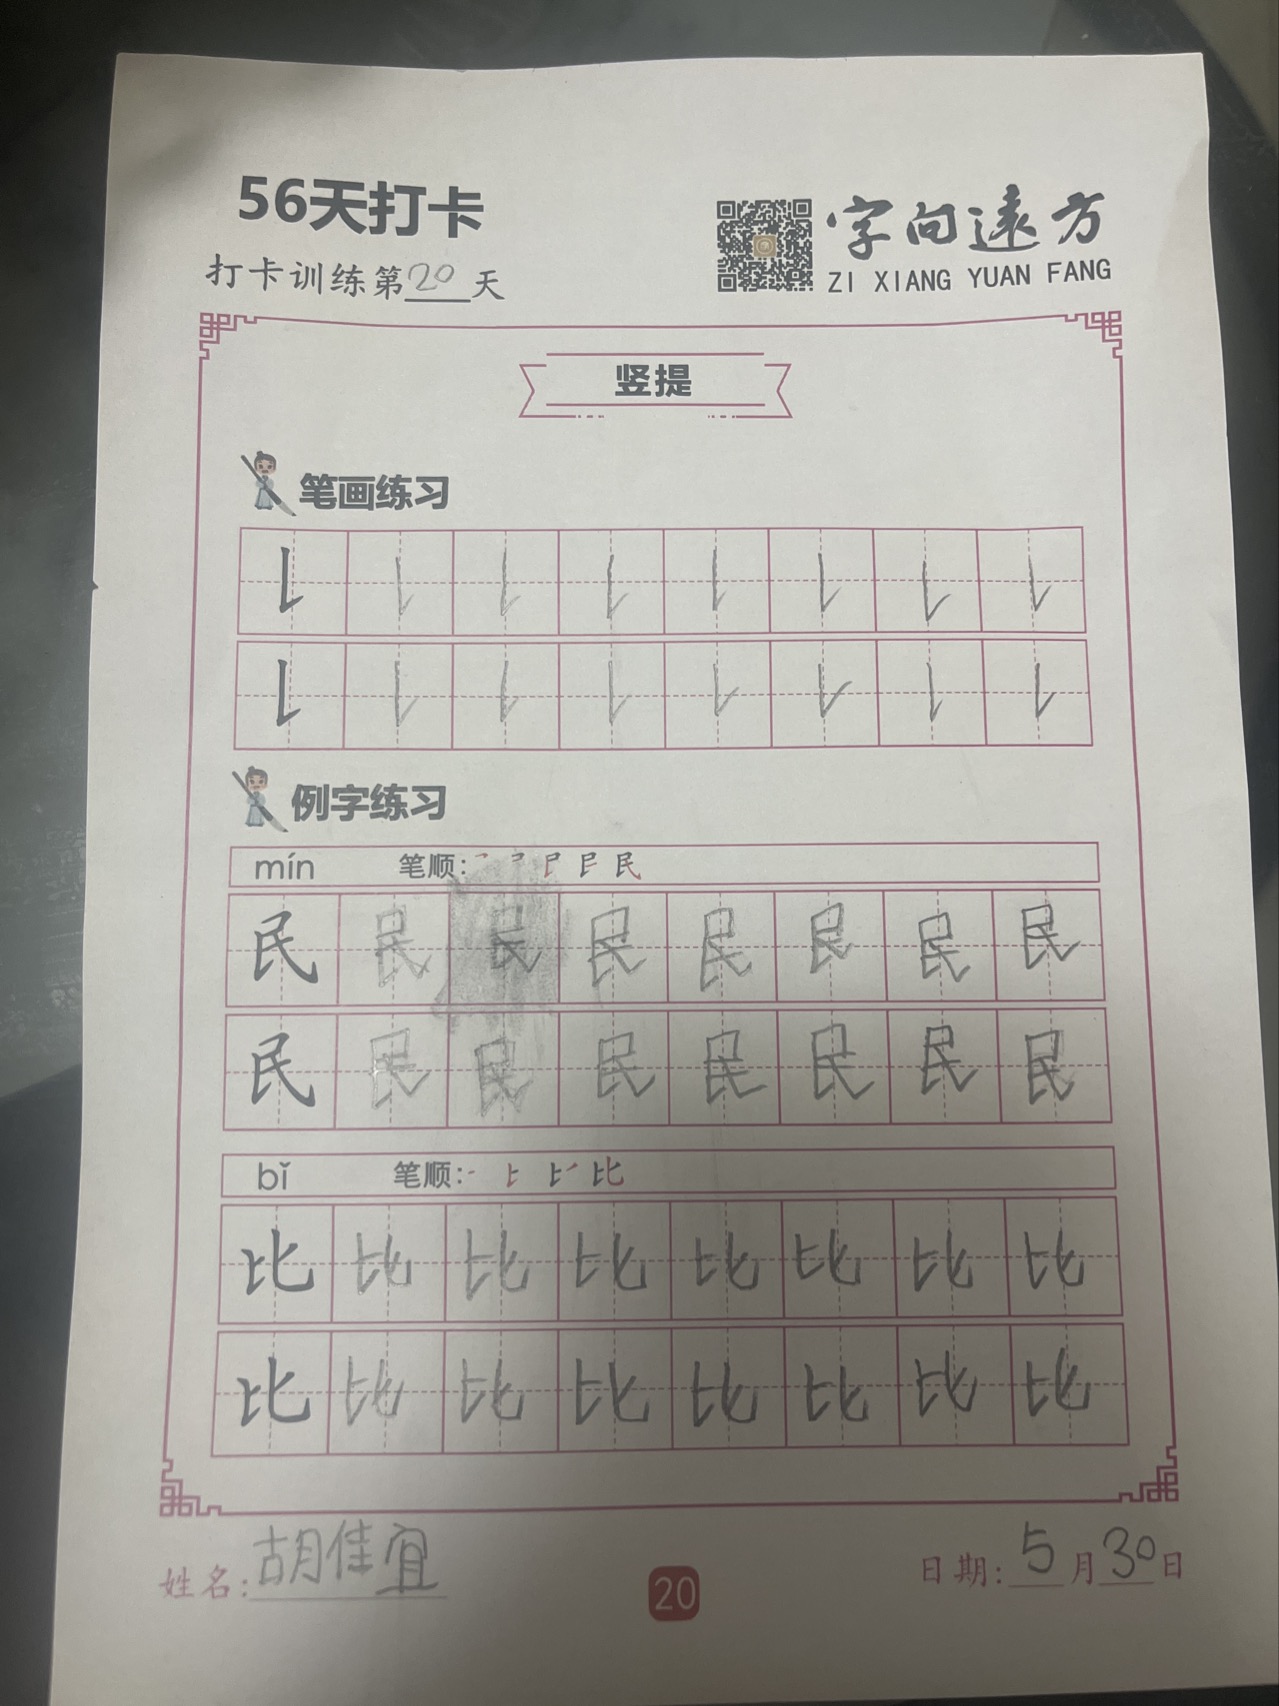 56天打卡
打卡训练第20天
字向遠方
ZI XIANG YUAN FANG
竖提
笔画练习
例字练习
mín 笔顺: 民
民 民 民 民 民 民 民 民
民 民 民 民 民 民 民 民
bǐ 笔顺: 比
比 比 比 比 比 比 比 比
比 比 比 比 比 比 比 比
姓名: 胡佳宜
20
日期: 5月30日